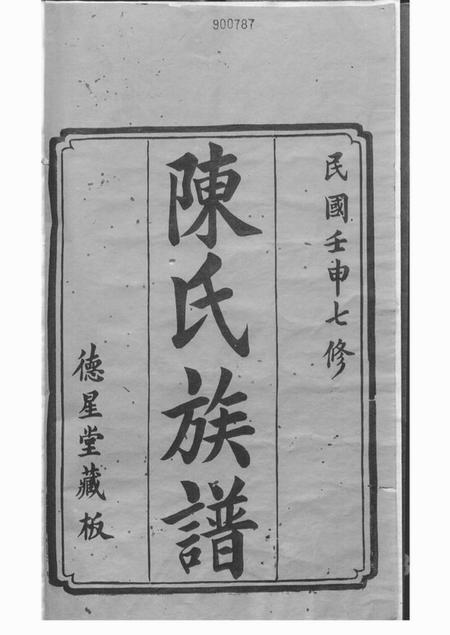 900787
民國壬申七修
陳氏族譜
德星堂藏板